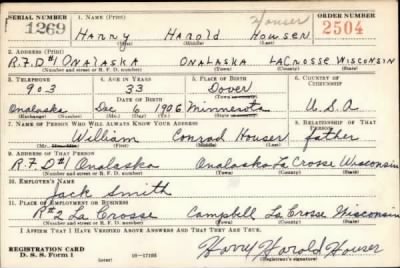 SERIAL NUMBER 1. NAME (Print) Houser ORDER NUMBER
1269 HARRY HAROLD HOUSER 2504
(First) (Middle) (Last)
2. ADDRESS (Print)
R.F.D#1 ONALASKA ONALASKA LACROSSE WISCONSIN
(Number and street or R. F. D. number) (Town) (County) (State)
3. TELEPHONE 4. AGE IN YEARS 5. PLACE OF BIRTH 6. COUNTRY OF CITIZENSHIP
903 33 Dover
DATE OF BIRTH (Town or county)
Onalaska Dec 6 1906 Minnesota U.S.A
(Exchange) (Number) (Mo.) (Day) (Yr.) (State or country)
7. NAME OF PERSON WHO WILL ALWAYS KNOW YOUR ADDRESS 8. RELATIONSHIP OF THAT PERSON
William Conrad Houser father
(Mr., Mrs., Miss) (First) (Middle) (Last)
9. ADDRESS OF THAT PERSON
R.F.D#1/Onalaska Onalaska La Crosse Wisconsin
(Number and street or R. F. D. number) (Town) (County) (State)
10. EMPLOYER'S NAME
Jack Smith
11. PLACE OF EMPLOYMENT OR BUSINESS
R#2 La Crosse Campbell La Crosse Wisconsin
(Number and street or R. F. D. number) (Town) (County) (State)
I AFFIRM THAT I HAVE VERIFIED ABOVE ANSWERS AND THAT THEY ARE TRUE.
REGISTRATION CARD
D. S. S. Form 1 16—17105 Harry Harold Houser
(over) (Registrant's signature)